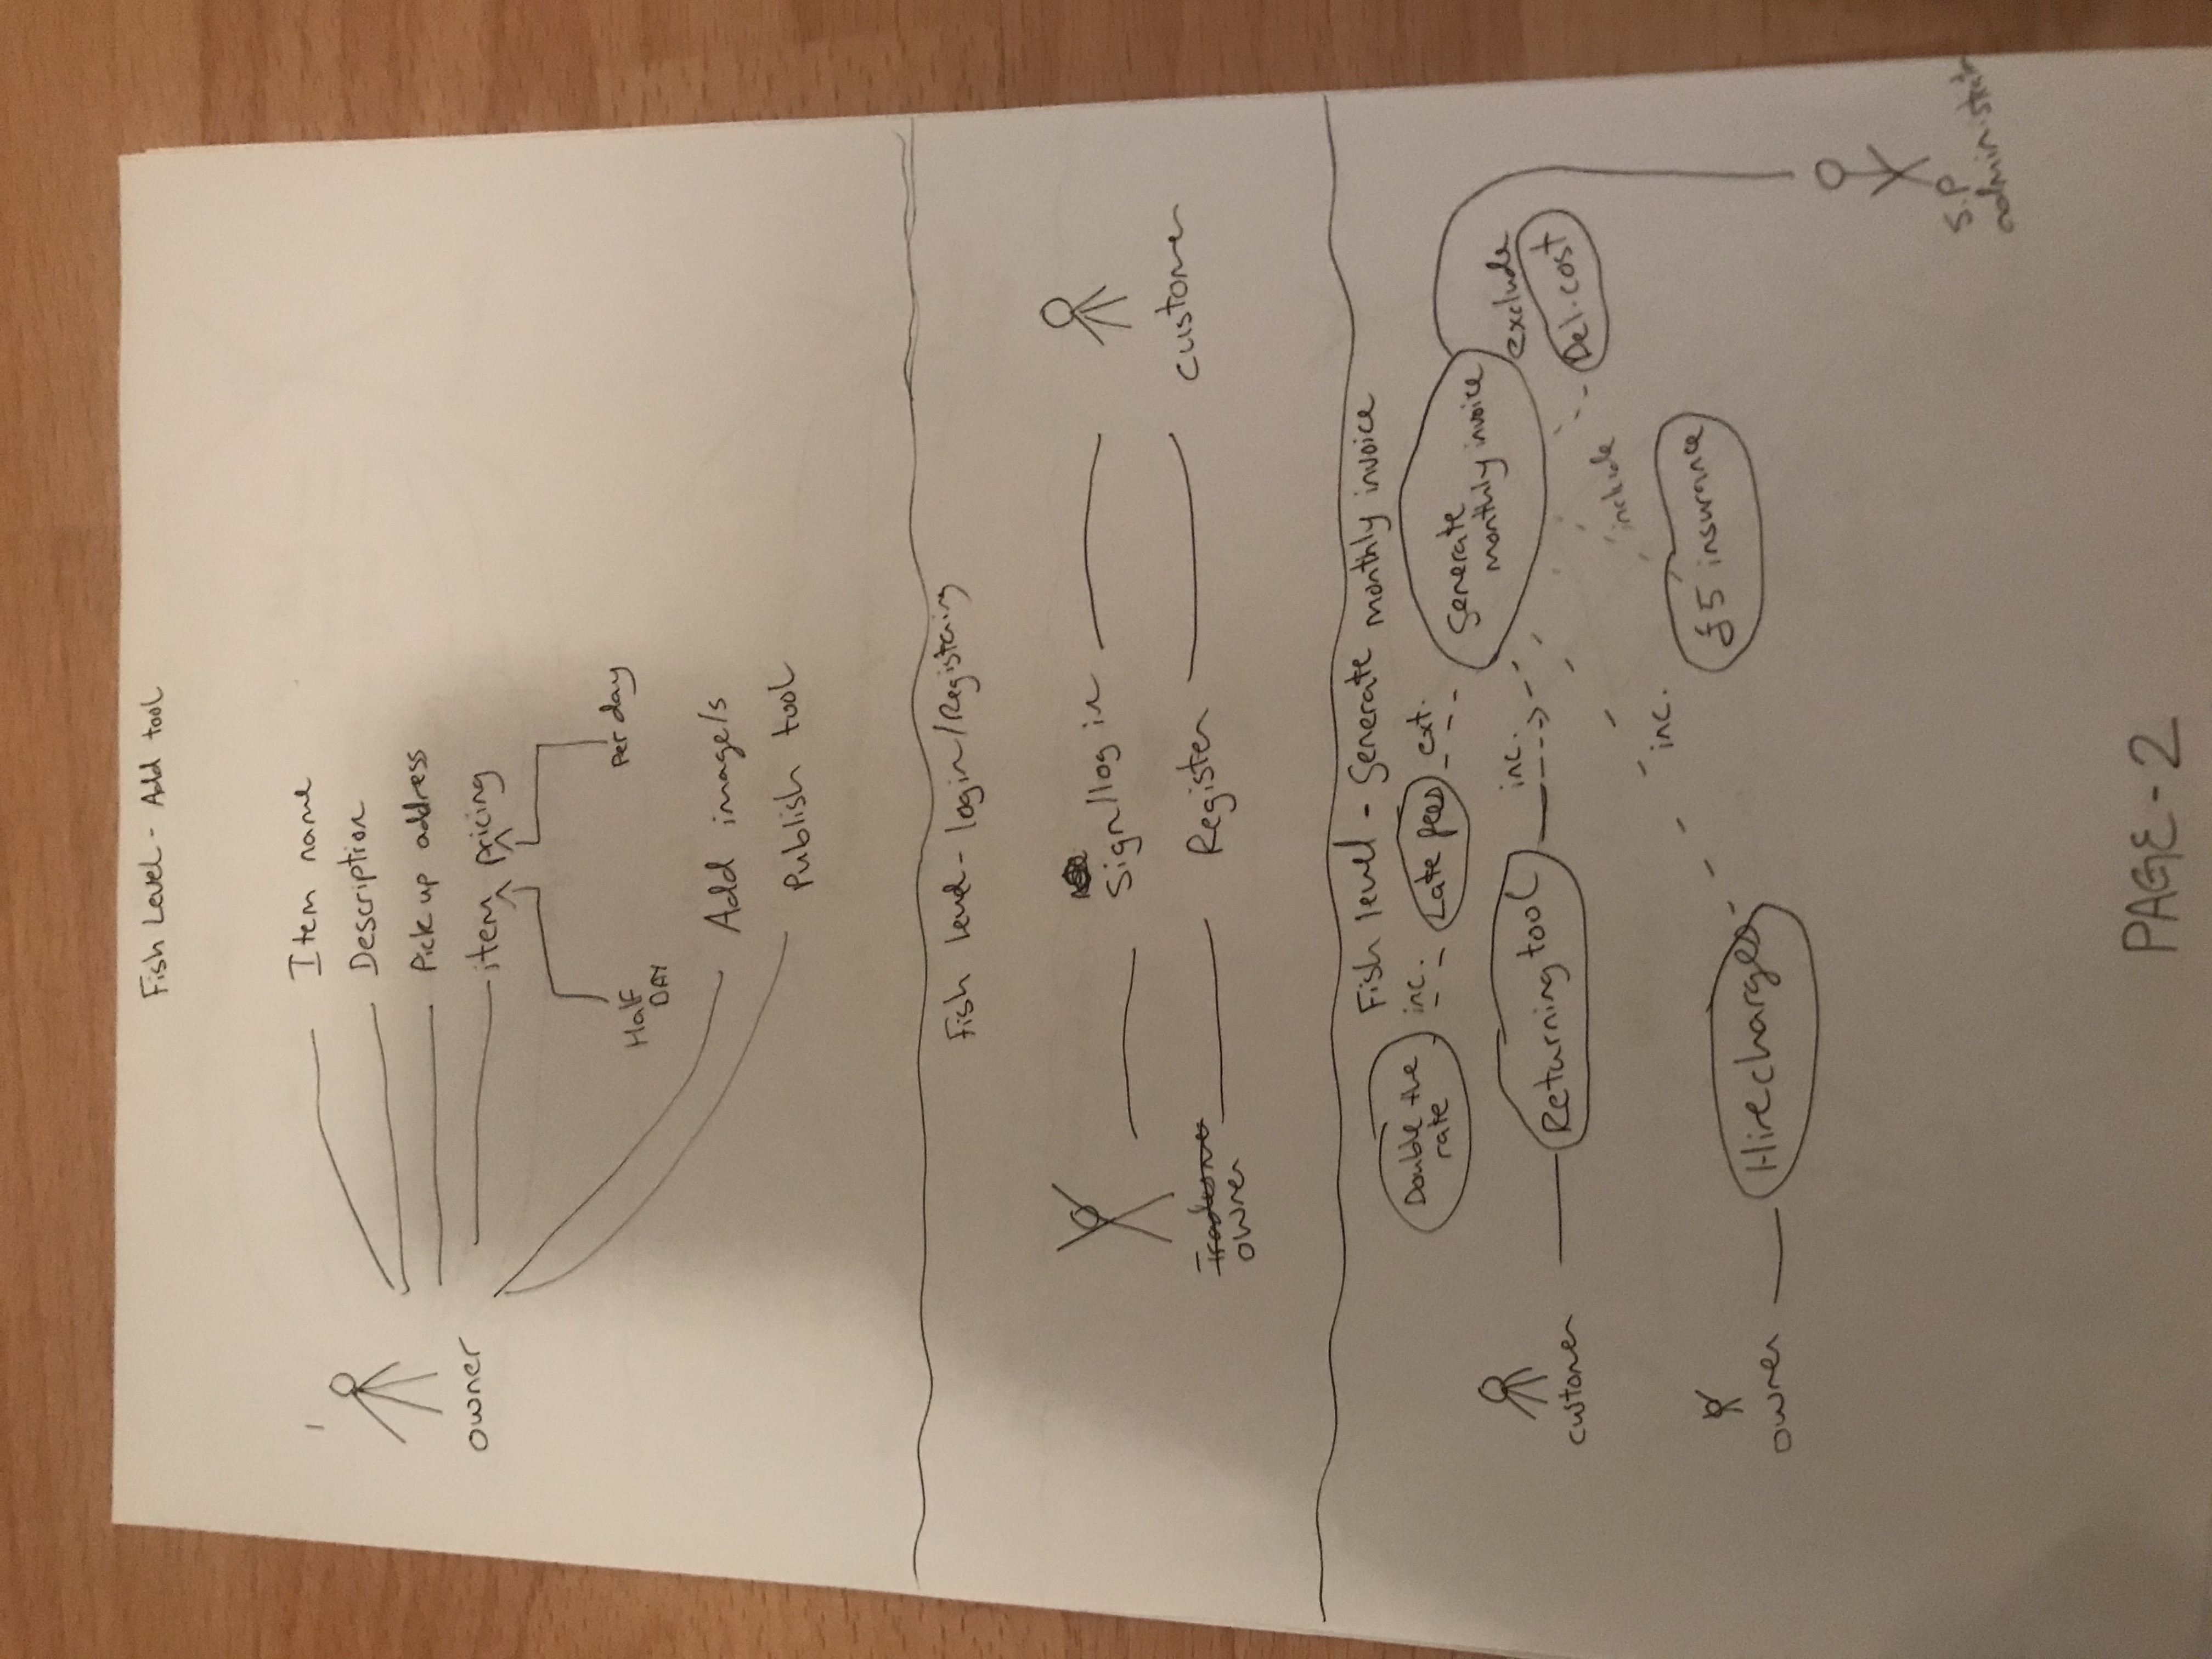 Fish Level - Add tool
Item name
Description
Pick up address
owner
item pricing
Half
DAY
Per day
Add image/s
Publish tool
Fish level - login/Registering
Sign/log in
Register
customer
owner
Fish level - Generate monthly invoice
Double the
rate
inc.
Late fees
ext.
Generate
monthly invoice
exclude
Returning tool
inc.
Del. cost
customer
include
inc.
£5 insurance
owner
Hire charges
S.P
administrator
PAGE - 2